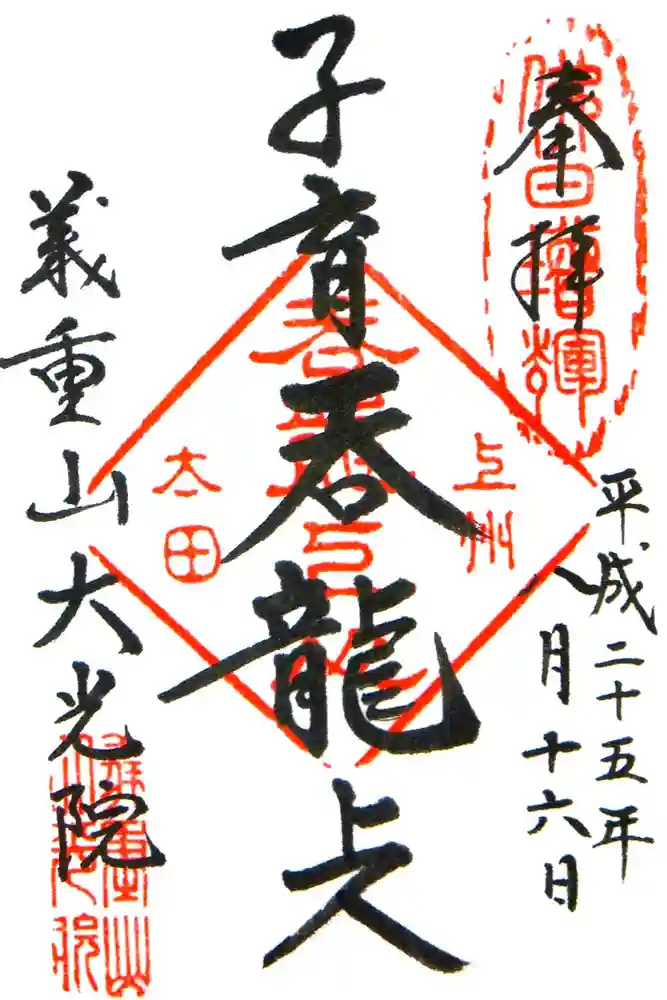 奉拝
佛日増輝
平成二十五年
八月十六日
子育呑龍上人
上州
太田
義重山大光院